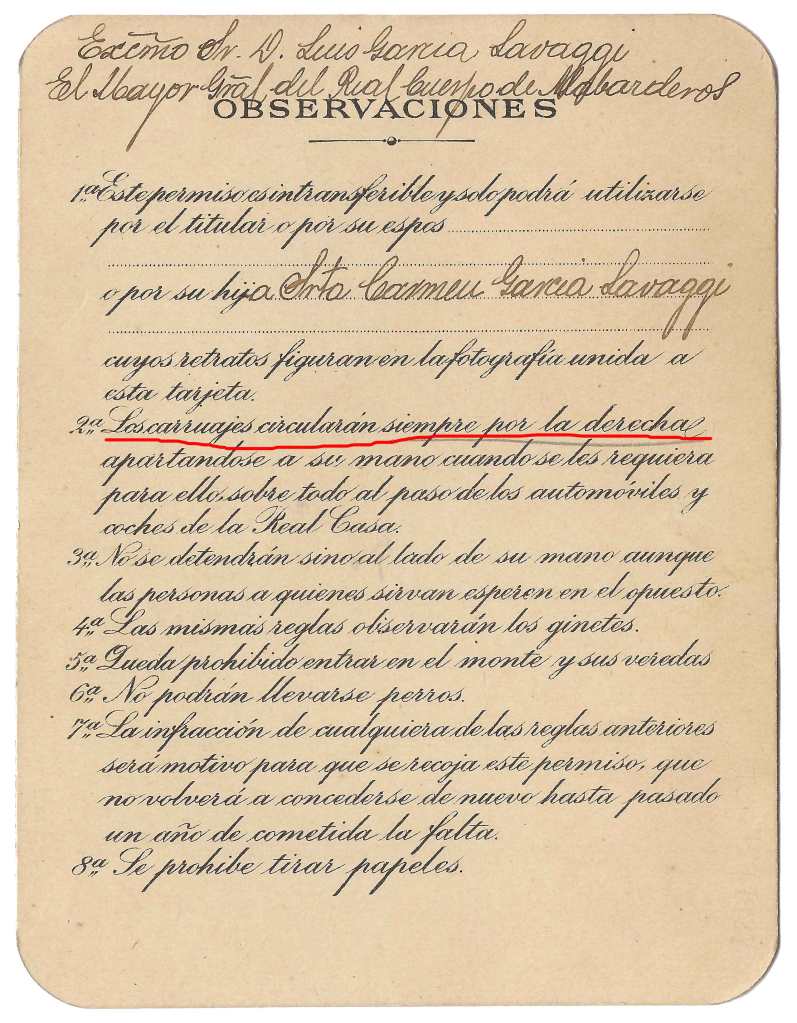 Excmo Sr. D. Luis Garcia Lavaggi
El Mayor Gral del Real Cuerpo de Alabarderos
OBSERVACIONES
1ª Este permiso es intransferible y solo podrá utilizarse
por el titular o por su espos
o por su hija Srta Carmen Garcia Lavaggi
cuyos retratos figuran en la fotografía unida a
esta tarjeta.
2ª Los carruajes circularán siempre por la derecha
apartandose a su mano cuando se les requiera
para ello, sobre todo al paso de los automóviles y
coches de la Real Casa.
3ª No se detendrán sino al lado de su mano aunque
las personas a quienes sirvan esperen en el opuesto.
4ª Las mismas reglas observarán los ginetes.
5ª Queda prohibido entrar en el monte y sus veredas
6ª No podrán llevarse perros.
7ª La infracción de cualquiera de las reglas anteriores
será motivo para que se recoja este permiso, que
no volverá a concederse de nuevo hasta pasado
un año de cometida la falta.
8ª Se prohibe tirar papeles.